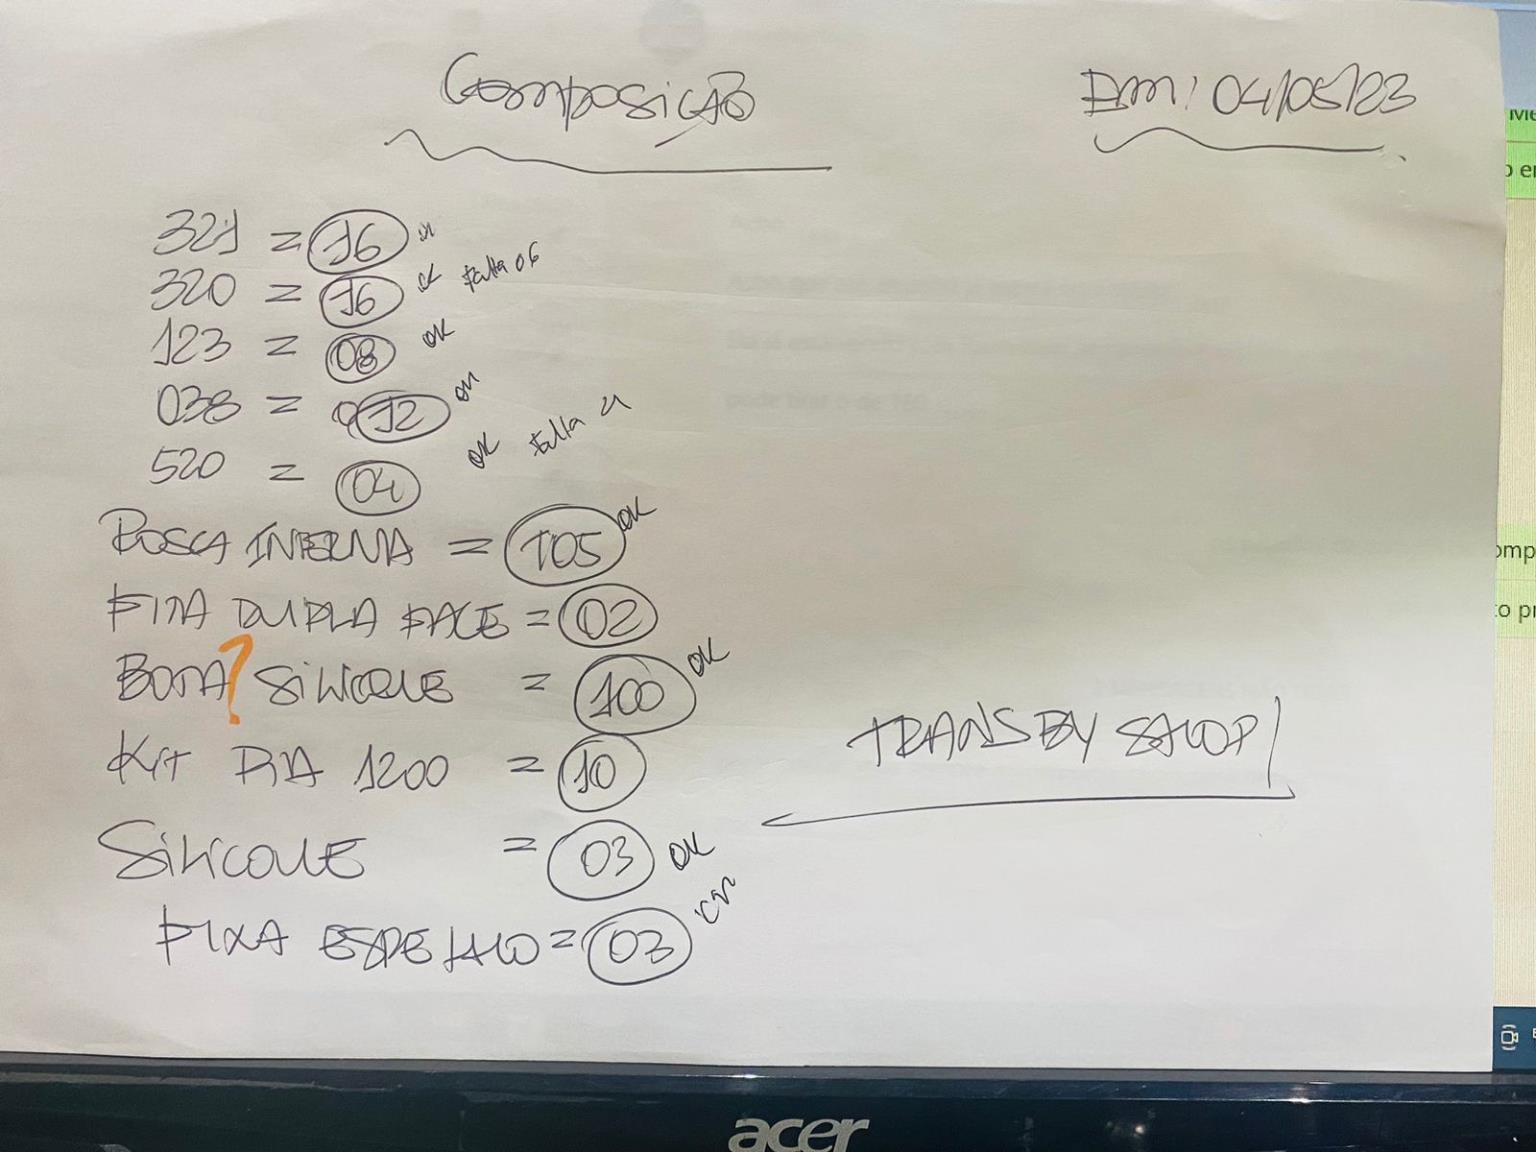 Composição
Em: 04/05/23
321 = 16 ok
320 = 16 ok falta 06
123 = 08 ok
038 = 12 ok
520 = 04 ok falta
ROSCA INTERNA = 105 ok
FITA DUPLA FACE = 02
BOTA? SILICONE = 100 ok
Kit DIA 1200 = 10
TRANSBY
SILICONE = 03 OK
FIXA ESPELHO = 03
acer